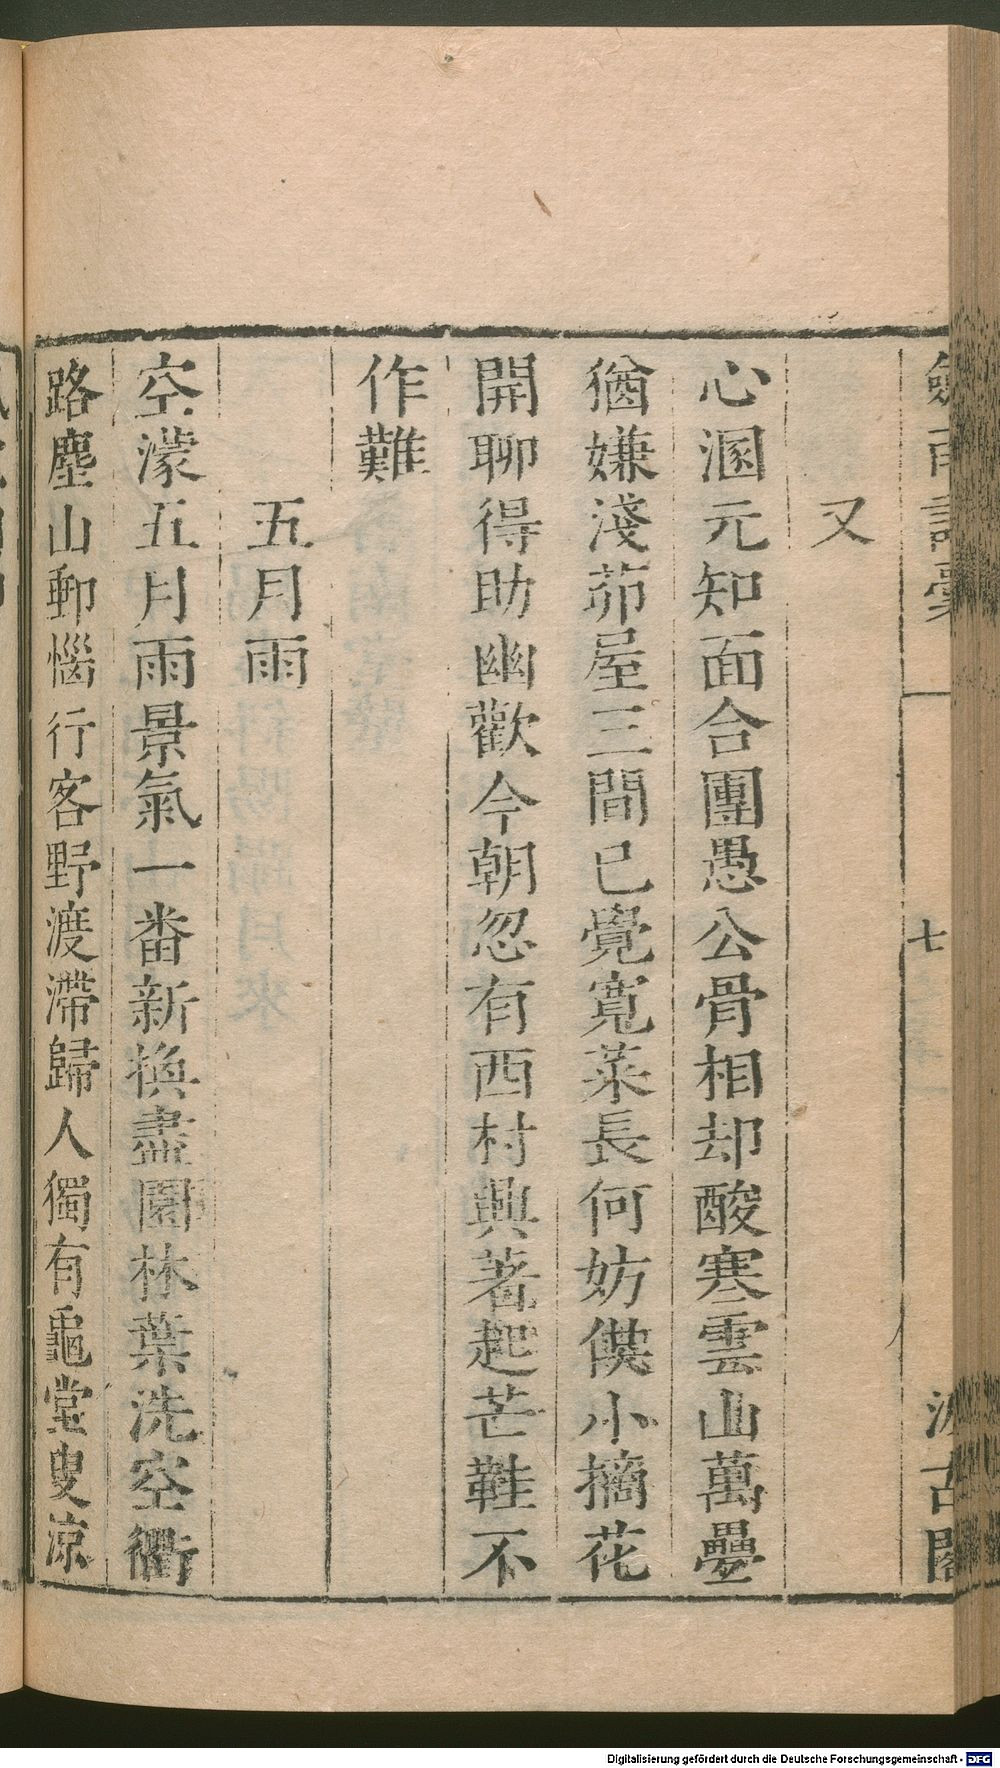 劒南詩稾
七
汲古閣
又
心溷元知面合團愚公骨相却酸寒雲山萬疊
猶嫌淺茆屋三間已覺寬菜長何妨僕小摘花
開聊得助幽歡今朝忽有西村興著起芒鞋不
作難
五月雨
空濛五月雨景氣一番新換盡園林葉洗空衢
路塵山郵惱行客野渡滯歸人獨有龜堂叟凉
Digitalisierung gefördert durch die Deutsche Forschungsgemeinschaft - DFG